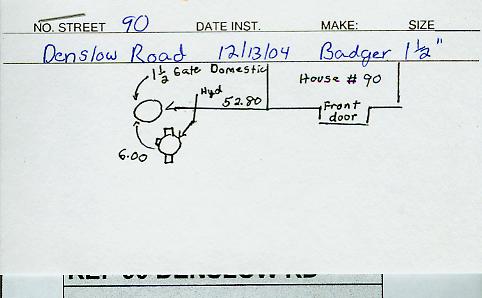 NO. STREET 90 DATE INST. MAKE: SIZE
Denslow Road 12/13/04 Badger 1 1/2"
1 1/2 Gate Domestic
House # 90
Hyd
52.80
Front
door
6.00